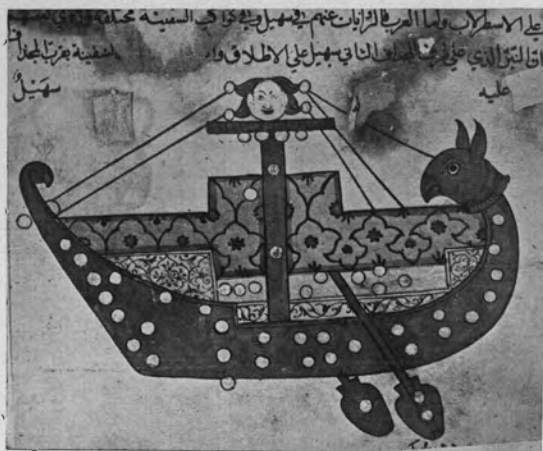 على الاسطرلاب واما العرب فالروايات عنهم في سهيل وفي كواكب السفينة مختلفة فروى
النير الذي على المجداف الثاني سهيل على الاطلاق السفينة بقرب المجداف
عليه سهيل